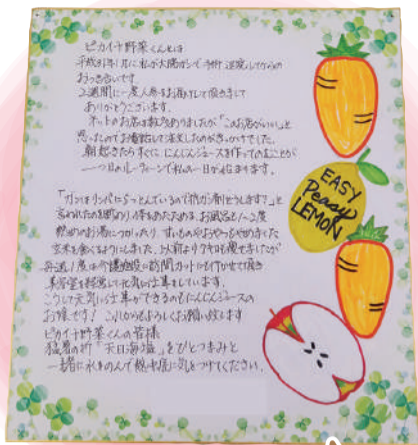 ピカイチ野菜くんとは
平成31年1月に私が大腸ガンで手術、退院してからの
お付き合いです。
2週間に一度人参をお届けして頂きまして
ありがとうございます。
ネットのお店は数々ありましたが「このお店がいい」と
思ったのでお電話して注文したのがきっかけでした。
朝起きたらすぐに、にんじんジュースを作ってのむことが
一つ目のルーティーンで私の一日が始まります。
「ガンはリンパにとんでいるので抗ガン剤どうします?」と
言われたのを断わり、体をあたためる、お風呂も
熱めのお湯につかったり、甘いものやおやつもやめました
玄米を食べるようにしました。以前より7キロも痩せましたが
毎週1度は介護施設に訪問カットにも行かせて頂き
美容室を経営して元気に仕事をしています。
こうして元気に仕事ができるのもにんじんジュースの
お陰です! これからもよろしくお願い致します
ピカイチ野菜くんの皆様
猛暑の折「天日海塩」をひとつまみと
一緒に水をのんで熱中症に気をつけてください。
EASY
Peasy
LEMON